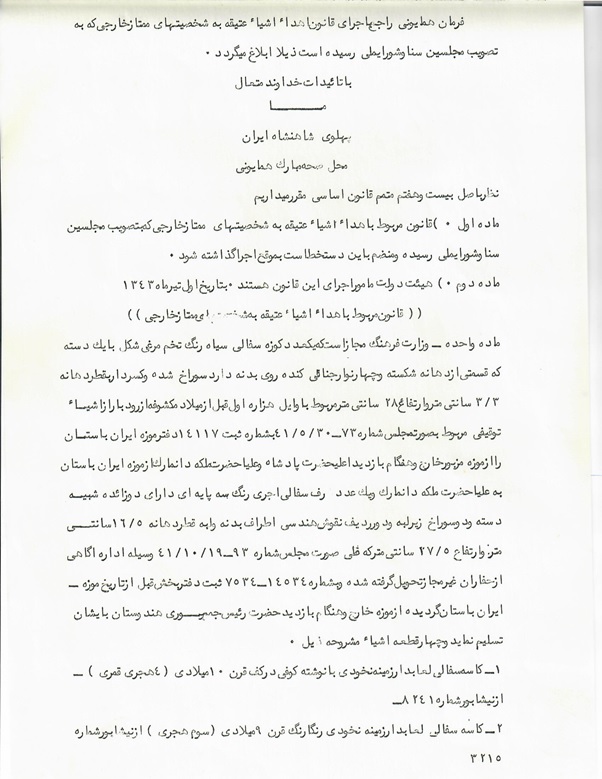 فرمان همایونی راجع باجرای قانون اهداء اشیاء عتیقه به شخصیتهای ممتاز خارجی که به
تصویب مجلسین سنا و شورایملی رسیده است ذیلا ابلاغ میگردد ۰
با تائیدات خداوند متعال
مـــــا
پهلوی شاهنشاه ایران
محل صحه مبارك همایونی
نظر باصل بیست وهفتم متمم قانون اساسی مقرر میداریم
ماده اول ۰ ) قانون مربوط با هداء اشیاء عتیقه به شخصیتهای ممتاز خارجی که بتصویب مجلسین
سنا و شورایملی رسیده ومنضم باین دستخط است بموقع اجرا گذاشته شود ۰
ماده دوم ۰ ) هیئت دولت مامور اجرای این قانون هستند ۰ بتاریخ اول تیرماه ۱۳٤۳
( ( قانون مربوط با هداء اشیاء عتیقه به شخصیتهای ممتاز خارجی ) )
ماده واحده ــ وزارت فرهنگ مجاز است که یکعدد کوزه سفالی سیاه رنگ تخم مرغی شکل با یك دسته
که قسمتی از دهانه شکسته وچهار نوار جناقی کنده روی بدنه دارد سوراخ شده وکسر دارد بقطر دهانه
۳/۳ سانتی متر وارتفاع ۲۸ سانتی متر مربوط با وایل هزاره اول قبل از میلاد مکشوفه از رودبار از اشیـــاء
توقیفی مربوط بصورتمجلس شماره ۷۳ــ٤۱/٥/۳۰ بشماره ثبت ۱٤۱۱۷ دفتر موزه ایران باستــان
را از موزه مزبور خارج و هنگام بازدید اعلیحضرت پادشاه وعلیاحضرت ملکه دانمارك از موزه ایران باستان
به علیاحضرت ملکه دانمارك ویك عدد ظرف سفالی اجری رنگ سه پایه ای دارای دو زائده شبیــه
دسته ودو سوراخ زیر لبه ودو ردیف نقوش هندسی اطراف بدنه ولبه قطر دهانه ۱٦/٥ سانتـــی
متر وارتفاع ۲۷/٥ سانتی متر که طی صورت مجلس شماره ۹۳ــ٤۱/۱۰/۱۹ وسیله اداره اگاهی
از حفاران غیر مجاز تحویل گرفته شده وبشماره ۱٤٥۳٤ــ۷٥۳٤ ثبت دفتر بخش قبل از تاریخ موزه ــ
ایران باستان گردیده از موزه خارج وهنگام بازدید حضرت رئیس جمهـــوری هندوستان بایشان
تسلیم نماید وچهار قطعه اشیاء مشروحه ذیل ۰
۱ــ کاسه سفالی لعابدار زمینه نخودی با نوشته کوفی در کف قرن ۱۰ میلادی ( ٤ هجری قمری ) ــ
از نیشابور شماره ۸۲٤۱ــ
۲ــ کاسه سفالی لعابدار زمینه نخودی رنگارنگ قرن ۹ میلادی ( سوم هجری ) از نیشابور شماره
۳۲۱٥